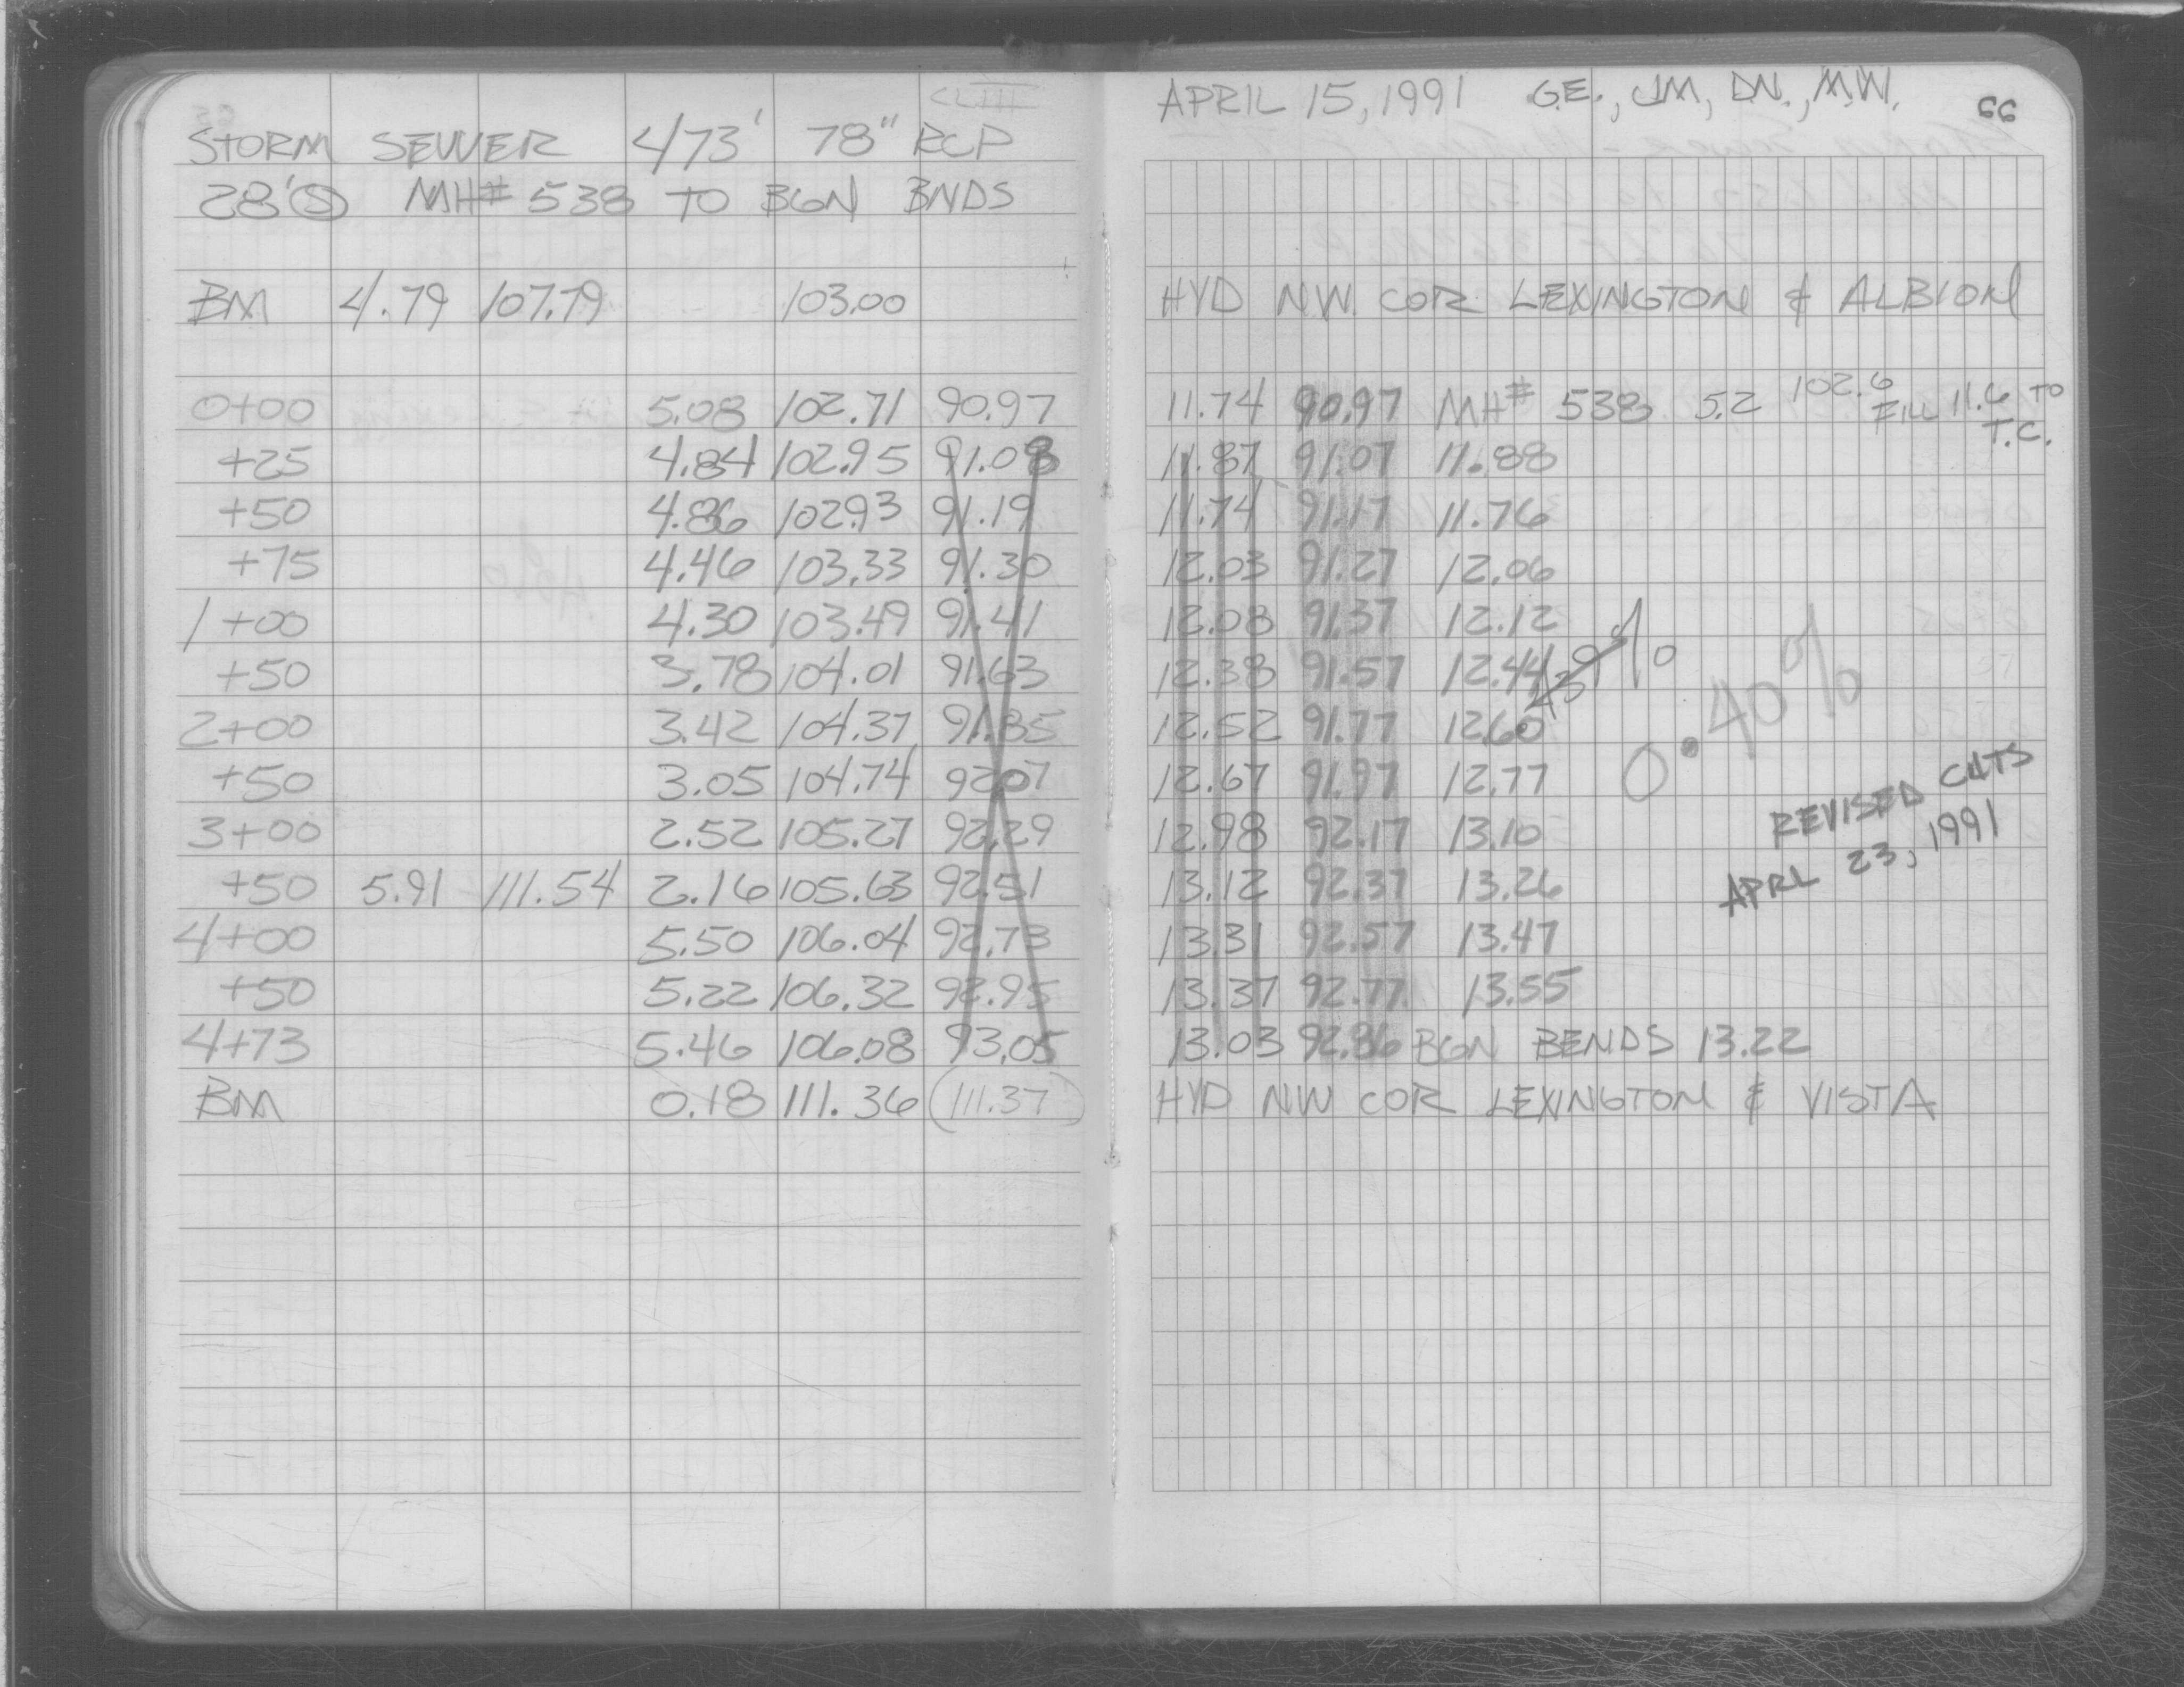 CL III
STORM SEWER 473' 78" RCP
28' S MH# 538 TO BGN BNDS
BM 4.79 107.79 103.00
0+00 5.08 102.71 90.97
+25 4.84 102.95 91.08
+50 4.86 102.93 91.19
+75 4.46 103.33 91.30
1+00 4.30 103.49 91.41
+50 3.78 104.01 91.63
2+00 3.42 104.37 91.85
+50 3.05 104.74 92.07
3+00 2.52 105.27 92.29
+50 5.91 111.54 2.16 105.63 92.51
4+00 5.50 106.04 92.73
+50 5.22 106.32 92.95
4+73 5.46 106.08 93.05
BM 0.18 111.36 (111.37)
APRIL 15, 1991 G.E., JM, DN., M.W. 66
HYD N.W. COR LEXINGTON & ALBION
11.74 90.97 MH# 538 5.2 102.6 FILL 11.6 TO T.C.
11.87 91.07 11.88
11.74 91.17 11.76
12.03 91.27 12.06
12.08 91.37 12.12
12.38 91.57 12.44
12.52 91.77 12.60
12.67 91.97 12.77
12.98 92.17 13.10
13.12 92.37 13.26
13.31 92.57 13.47
13.37 92.77 13.55
13.03 92.86 BGN BENDS 13.22
HYD NW COR LEXINGTON & VISTA
0.40%
REVISED CUTS
APRL 23, 1991